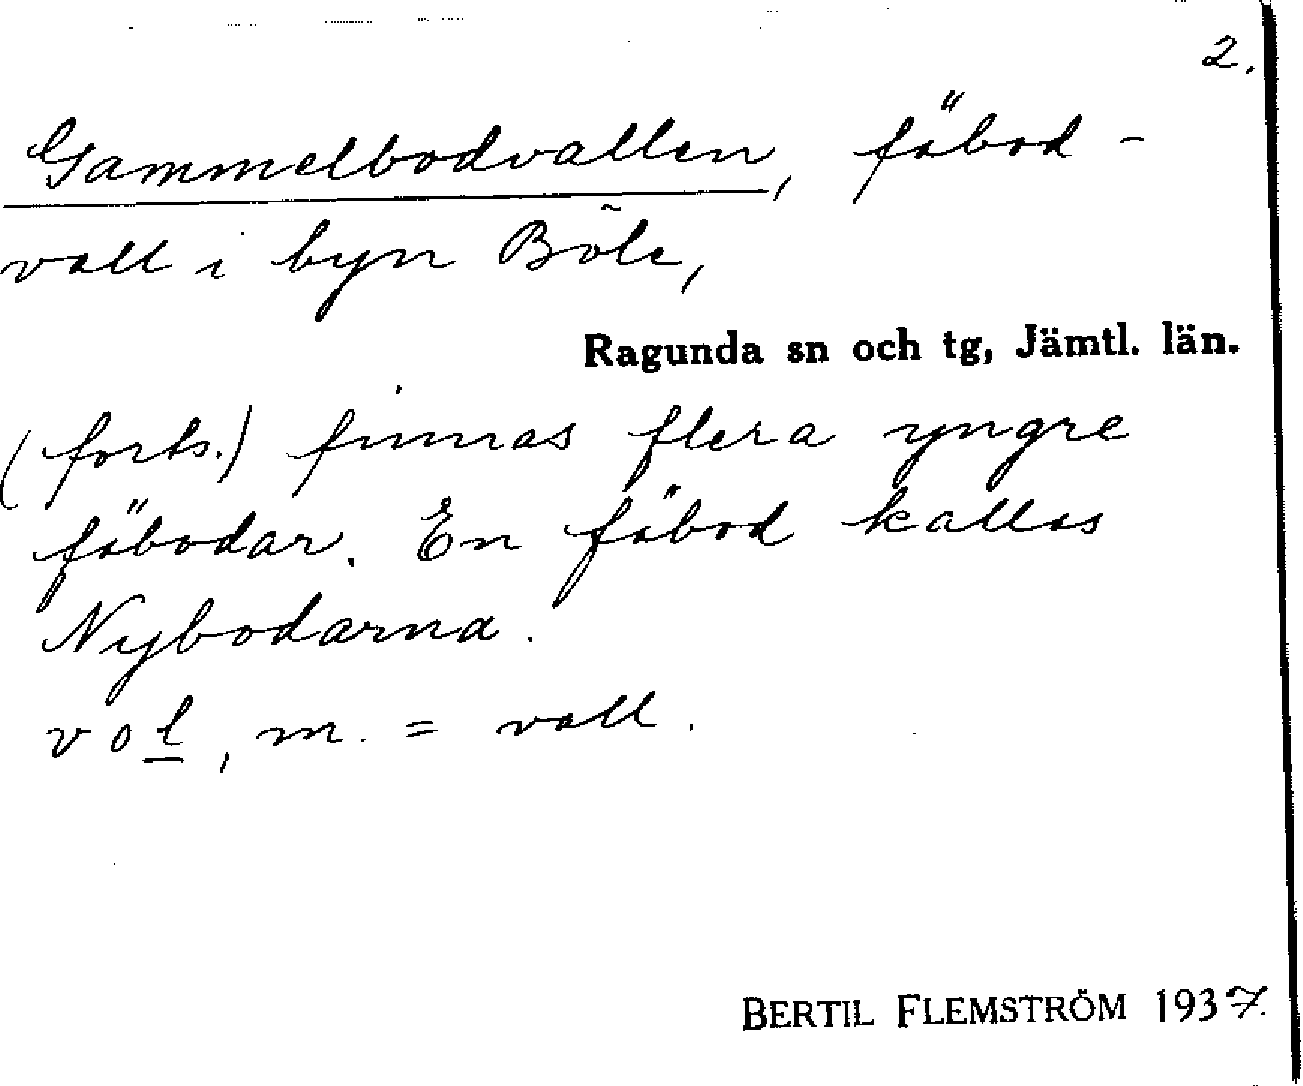 2.
Gammelbodvallen, fäbod-
vall i byn Böle,
Ragunda sn och tg, Jämtl. län.
(forts.) finnas flera yngre
fäbodar. En fäbod kallas
Nybodarna.
vol, m. = vall.
BERTIL FLEMSTRÖM 1937.